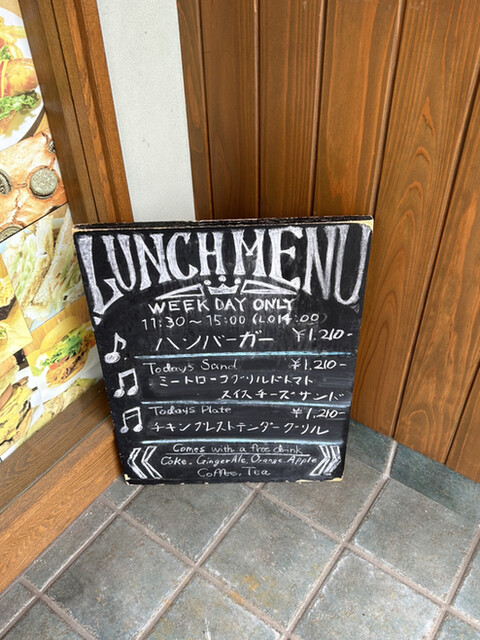 LUNCH MENU
WEEK DAY ONLY
11:30〜15:00 (LO14:00)
ハンバーガー ¥1,210-
Today's Sand ¥1,210-
ミートローフグリルドトマト
スイスチーズサンド
Today's Plate ¥1,210-
チキンブレストテンダーグリル
Comes with a free drink
Coke, Ginger Ale, Orange, Apple
Coffee, Tea